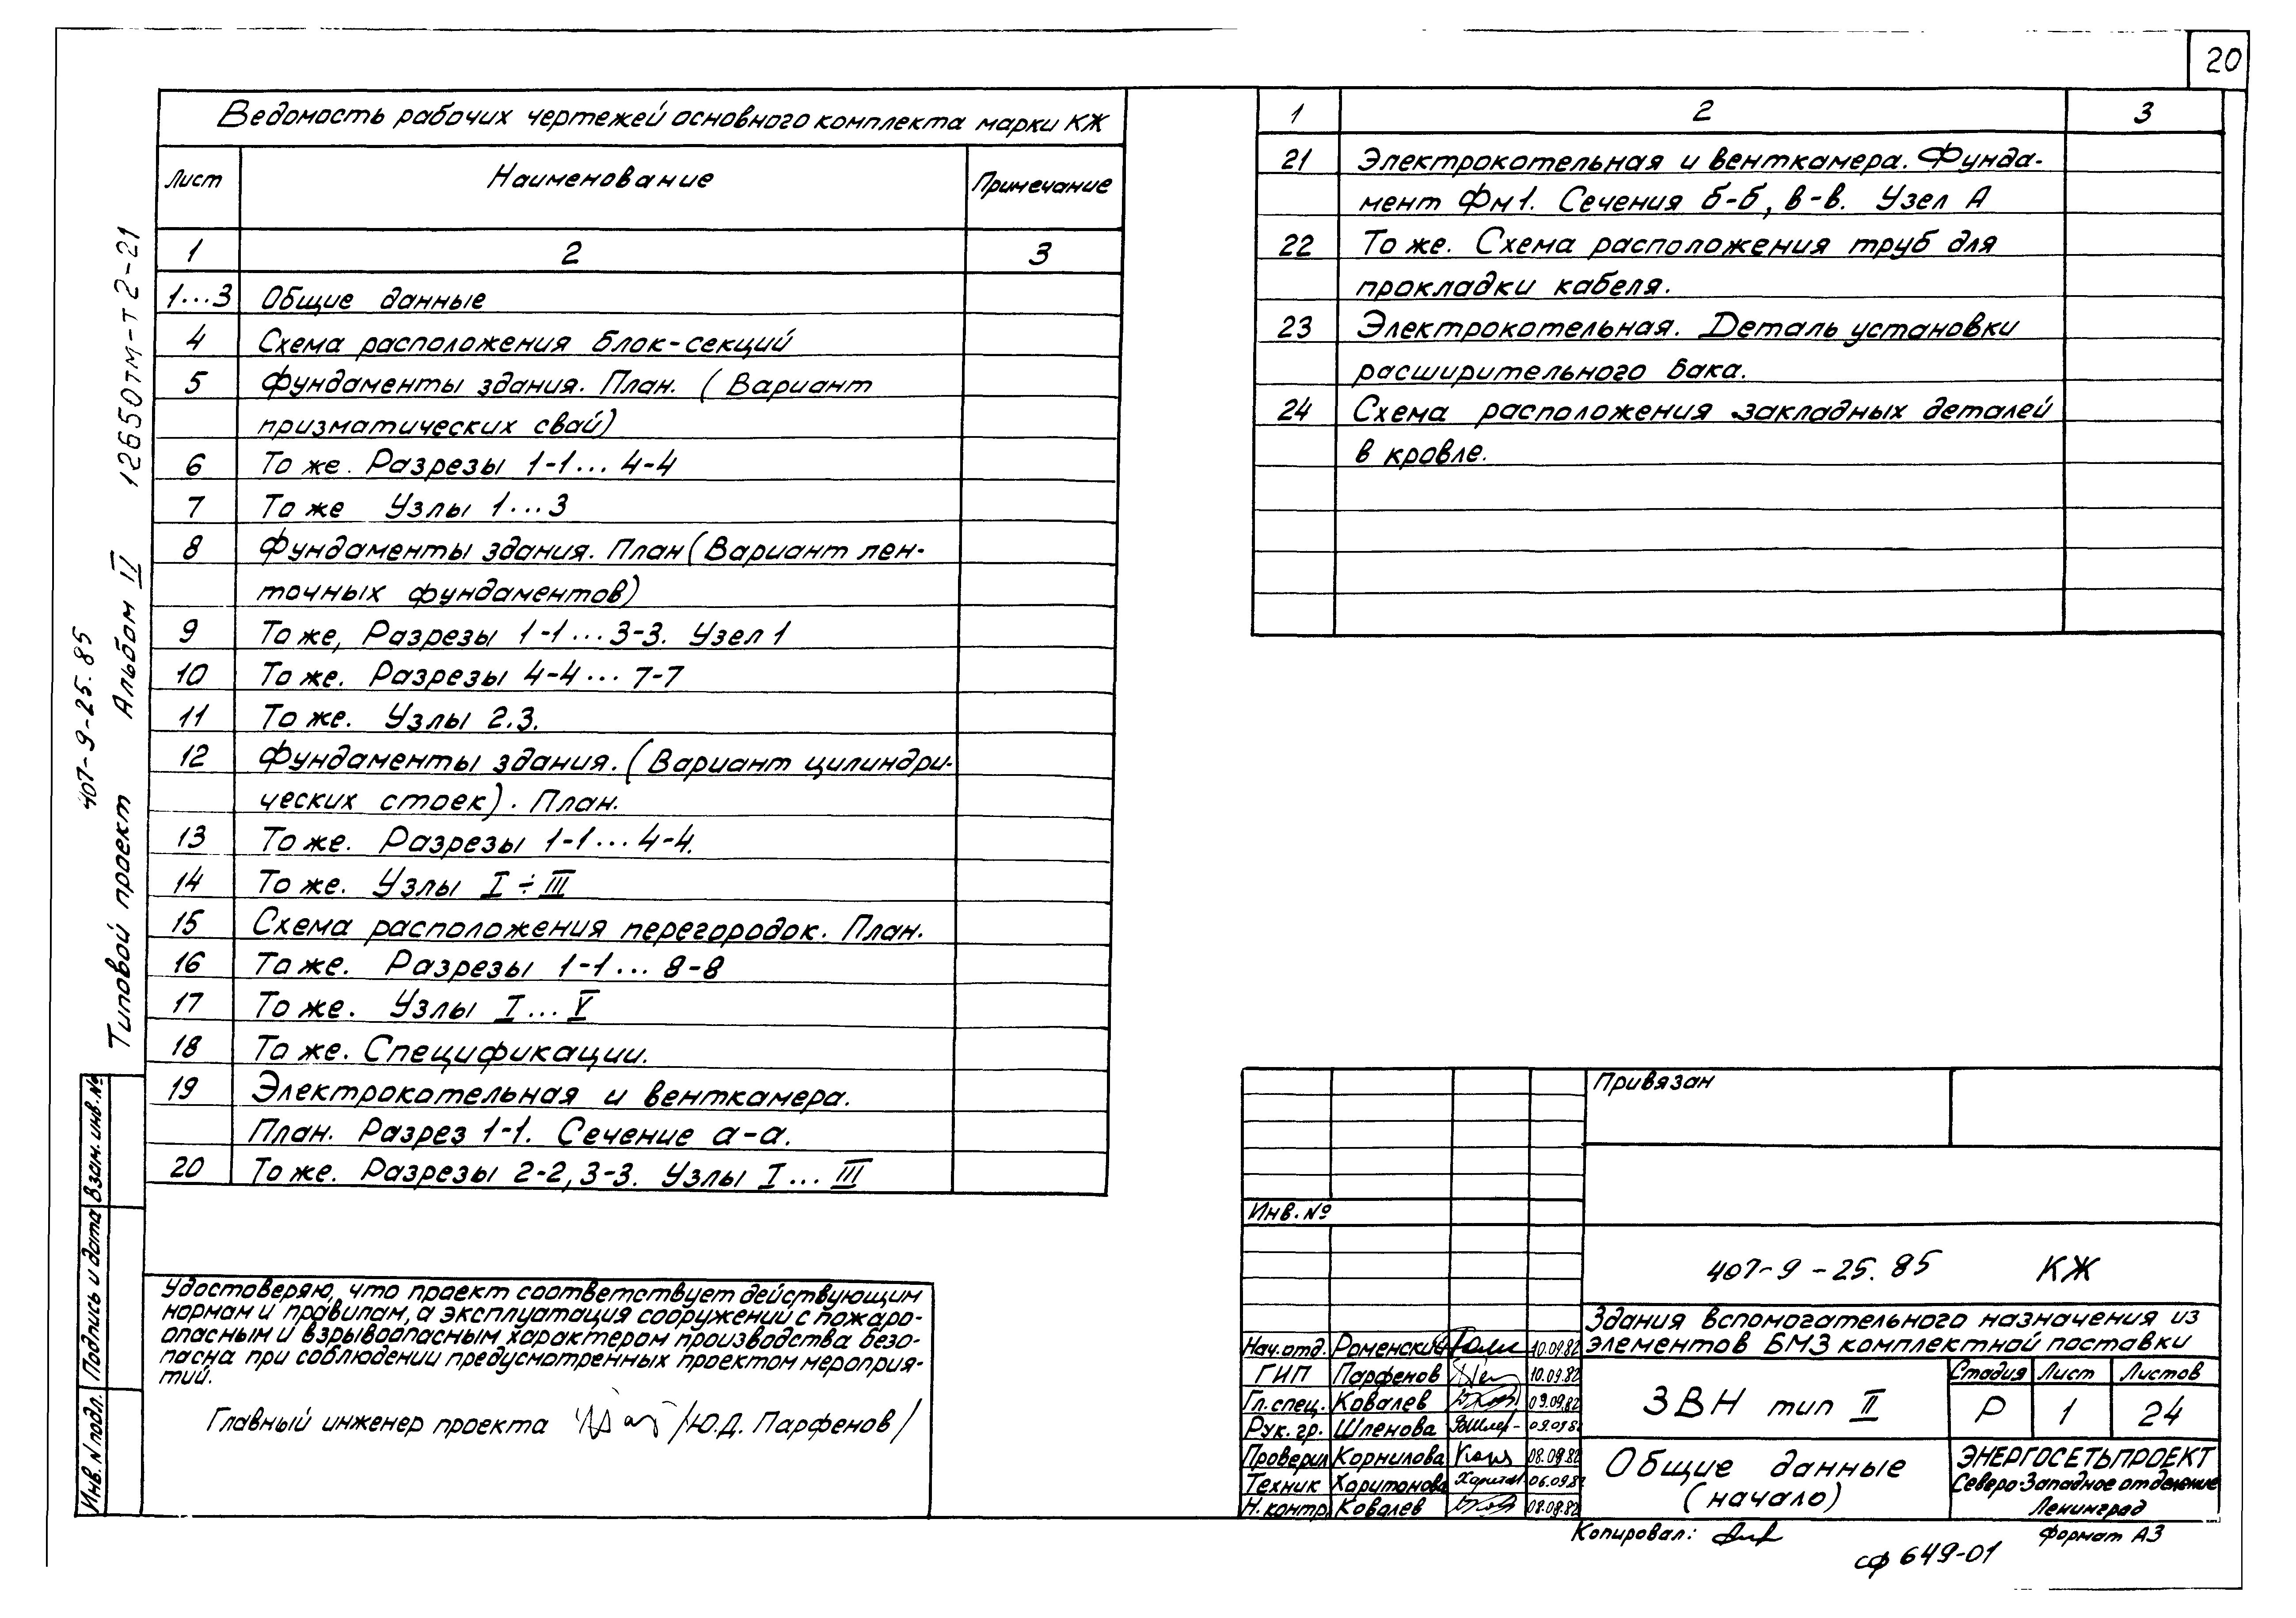 20
Ведомость рабочих чертежей основного комплекта марки КЖ
Лист Наименование Примечание
1 2 3
1...3 Общие данные
4 Схема расположения блок-секций
5 Фундаменты здания. План. (Вариант
призматических свай)
6 То же. Разрезы 1-1...4-4
7 То же Узлы 1...3
8 Фундаменты здания. План (Вариант лен-
точных фундаментов)
9 То же, Разрезы 1-1...3-3. Узел 1
10 То же. Разрезы 4-4...7-7
11 То же. Узлы 2.3.
12 Фундаменты здания. (Вариант цилиндри-
ческих стоек). План.
13 То же. Разрезы 1-1...4-4.
14 То же. Узлы I÷III
15 Схема расположения перегородок. План.
16 То же. Разрезы 1-1...8-8
17 То же. Узлы I...V
18 То же. Спецификации.
19 Электрокотельная и венткамера.
План. Разрез 1-1. Сечение а-а.
20 То же. Разрезы 2-2, 3-3. Узлы I...III
1 2 3
21 Электрокотельная и венткамера. Фунда-
мент Фм1. Сечения б-б, в-в. Узел А
22 То же. Схема расположения труб для
прокладки кабеля.
23 Электрокотельная. Деталь установки
расширительного бака.
24 Схема расположения закладных деталей
в кровле.
Типовой проект 407-9-25.85 Альбом IV 12650тм-т2-21
Взам. инв. №
Подпись и дата
Инв. N подл.
Удостоверяю, что проект соответствует действующим
нормам и правилам, а эксплуатация сооружений с пожаро-
опасным и взрывоопасным характером производства безо-
пасна при соблюдении предусмотренных проектом мероприя-
тий.
Главный инженер проекта /Ю.Д. Парфенов/
Привязан
Инв. №
407-9-25.85 КЖ
Здания вспомогательного назначения из
элементов БМЗ комплектной поставки
Нач. отд. Роменский 10.09.82
ГИП Парфенов 10.09.82
Гл. спец. Ковалев 09.09.82
Рук. гр. Шленова 09.09.82
Проверил Корнилова 08.09.82
Техник Харитонова 06.09.82
Н. контр. Ковалев 08.09.82
ЗВН тип II
Стадия Лист Листов
Р 1 24
Общие данные
(начало)
ЭНЕРГОСЕТЬПРОЕКТ
Северо-Западное отделение
Ленинград
Копировал: Формат А3
сф 649-01